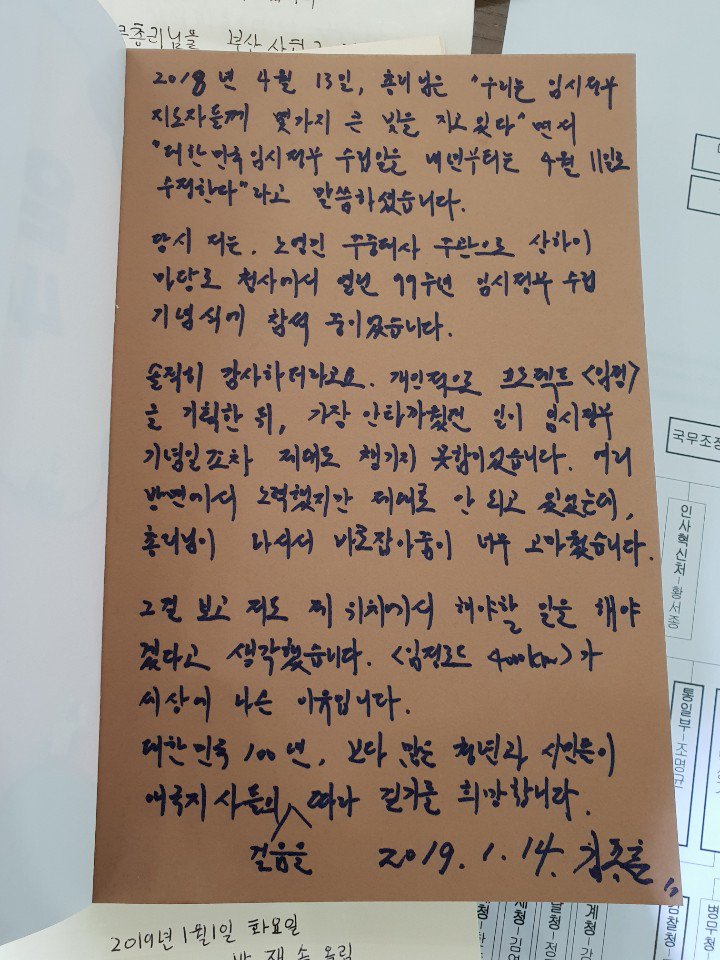 무총리님을 부산 사현
2018년 4월 13일, 총리님은 "우리는 임시정부
지도자들께 몇가지 큰 빚을 지고 있다"면서
"대한민국임시정부 수립일을 내년부터는 4월 11일로
수정한다"라고 말씀하셨습니다.
당시 저는, 노영민 주중대사 주관으로 상하이
마당로 청사에서 열린 99주년 임시정부 수립
기념식에 참석 중이었습니다.
솔직히 감사하더라고요. 개인적으로 프로젝트 <임정>
을 기획한 뒤, 가장 안타까웠던 일이 임시정부
기념일조차 제대로 챙기지 못함이었습니다. 여러
방면에서 노력했지만 제대로 안 되고 있었는데,
총리님이 나서서 바로잡아줌이 너무 고마웠습니다.
그걸 보고 저도 제 위치에서 해야할 일을 해야
겠다고 생각했습니다. <임정로드 4000km>가
세상에 나온 이유입니다.
대한민국 100년, 보다 많은 청년과 시민들이
애국지사들의 걸음을 따라 걷기를 희망합니다.
2019. 1. 14. 김종훈
2019년 1월 1일 화요일
박 재 송 올림
국무조정
인사혁신처-황서종
통일부-조명균
병무청
검찰청-
계청-강
달청-정
제청-김